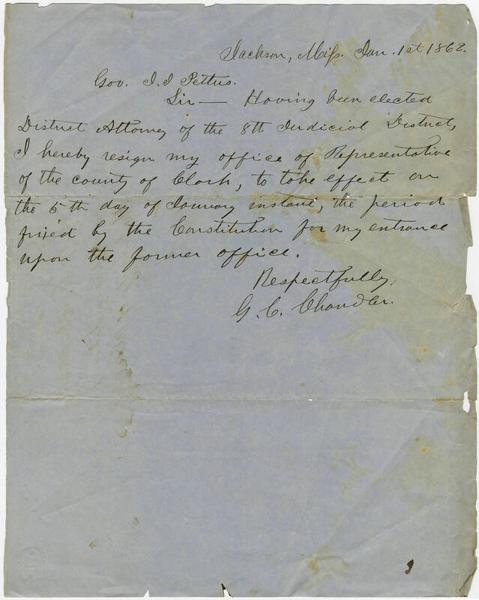 Jackson, Miſs. Jan. 1st 1862.
Gov. J. J. Pettus.
Sir — Having been elected
District Attorney of the 8th Judicial District,
I hereby resign my office of Representative
of the county of Clark, to take effect on
the 5th day of January instant, the period
fixed by the Constitution for my entrance
upon the former office.
Respectfully,
G. C. Chandler.